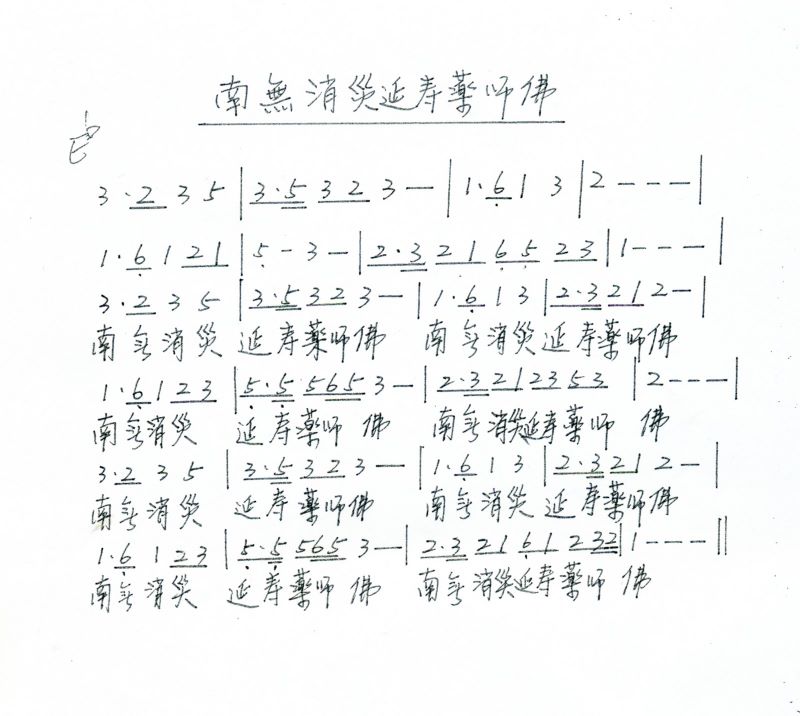 南無消災延寿薬师佛
3·2 3 5 | 3·5 3 2 3 — | 1·6 1 3 | 2 - - - |
1·6 1 2 1 | 5 - 3 — | 2·3 2 1 6 5 2 3 | 1 - - - |
3·2 3 5 | 3·5 3 2 3 — | 1·6 1 3 | 2·3 2 1 2 — |
南無消災 延寿薬师佛 南無消災延寿薬师佛
1·6 1 2 3 | 5·5 5 6 5 3 — | 2·3 2 1 2 3 5 3 | 2 - - - |
南無消災 延寿薬师 佛 南無消災延寿薬师 佛
3·2 3 5 | 3·5 3 2 3 — | 1·6 1 3 | 2·3 2 1 2 — |
南無消災 延寿薬师佛 南無消災 延寿薬师佛
1·6 1 2 3 | 5·5 5 6 5 3 — | 2·3 2 1 6 1 2 3 2 | 1 - - - ||
南無消災 延寿薬师 佛 南無消災延寿薬师 佛